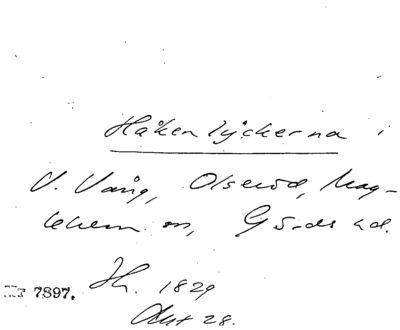 Håkenlyckerna i
V. Vång, Olseröd, Mag-
lehem sn, Gärds hd.
7897. Jh. 1829
Akt 28.